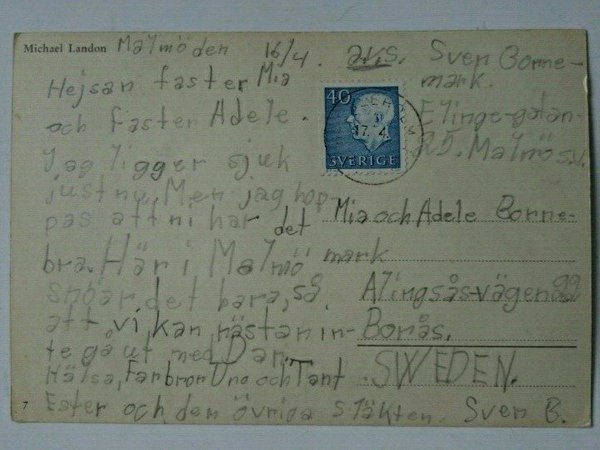 Michael Landon
Malmö den 16/4.
Hejsan faster Mia
och faster Adele.
Jag ligger sjuk
just nu, Men jag hop-
pas att ni har det
bra. Här i Malmö
snöar det bara, så
att vi kan nästan in-
te gå ut med Dan.
Hälsa, Farbror Uno och Tant
Ester och den övriga släkten. Sven B.
7
avs. Sven Borne-
mark.
Elinge-gatan
25. Malmö s.v.
40
SVERIGE
17. 4.
Mia och Adele Borne-
mark
Alingsås-vägen 99
Borås.
SWEDEN.